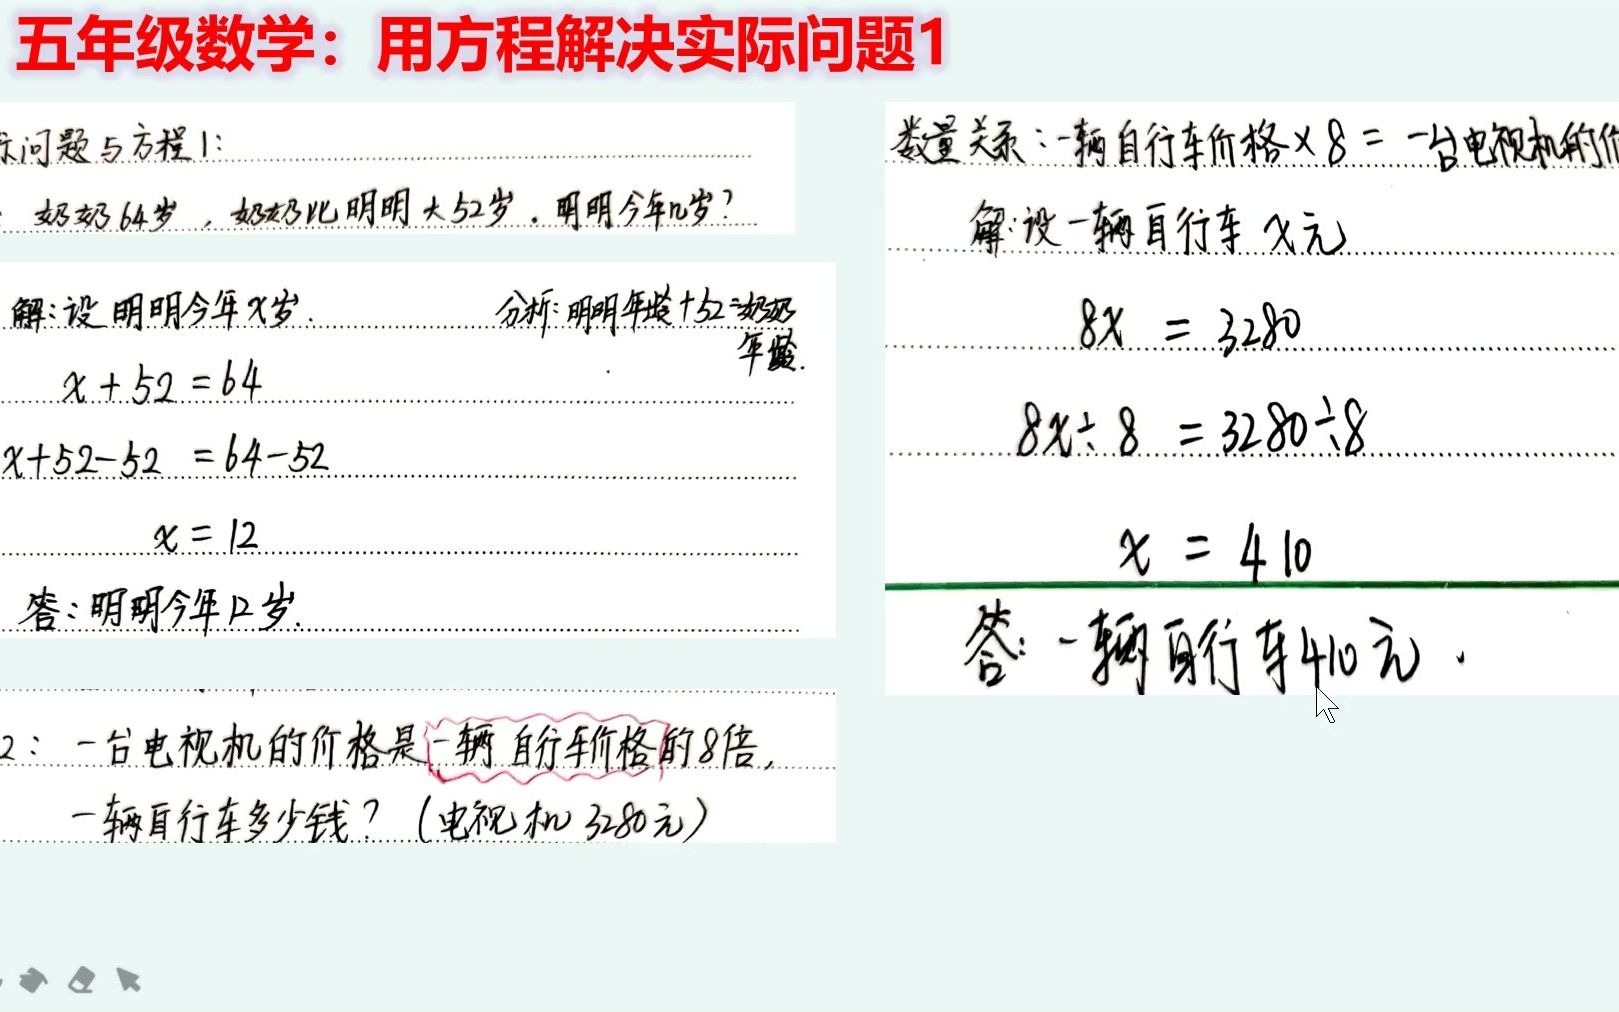 五年级数学：用方程解决实际问题1
问题与方程1：
奶奶64岁，奶奶比明明大52岁．明明今年几岁？
解：设明明今年x岁．
分析：明明年龄+52=奶奶
年龄．
x+52=64
x+52-52=64-52
x=12
答：明明今年12岁．
2：一台电视机的价格是一辆自行车价格的8倍，
一辆自行车多少钱？（电视机3280元）
数量关系：一辆自行车价格×8=一台电视机的价
解：设一辆自行车x元
8x=3280
8x÷8=3280÷8
x=410
答：一辆自行车410元．